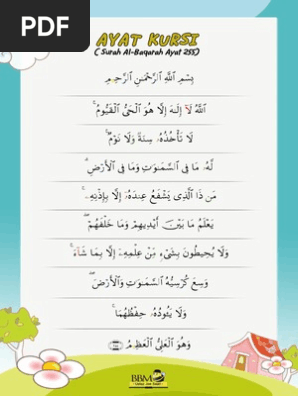 PDF
AYAT KURSI
( Surah Al-Baqarah Ayat 255)
بِسْمِ اللَّهِ الرَّحْمَٰنِ الرَّحِيمِ
اللَّهُ لَآ إِلَٰهَ إِلَّا هُوَ الْحَيُّ الْقَيُّومُ ۚ
لَا تَأْخُذُهُۥ سِنَةٌ وَلَا نَوْمٌ ۚ
لَّهُۥ مَا فِي السَّمَٰوَٰتِ وَمَا فِي الْأَرْضِ ۗ
مَن ذَا الَّذِي يَشْفَعُ عِندَهُۥٓ إِلَّا بِإِذْنِهِۦ ۚ
يَعْلَمُ مَا بَيْنَ أَيْدِيهِمْ وَمَا خَلْفَهُمْ ۖ
وَلَا يُحِيطُونَ بِشَيْءٍ مِّنْ عِلْمِهِۦٓ إِلَّا بِمَا شَآءَ ۚ
وَسِعَ كُرْسِيُّهُ السَّمَٰوَٰتِ وَالْأَرْضَ ۖ
وَلَا يَـُٔودُهُۥ حِفْظُهُمَا ۚ
وَهُوَ الْعَلِيُّ الْعَظِيمُ
BBM